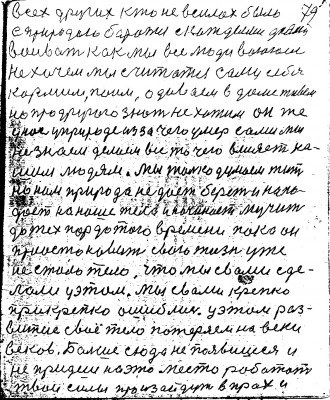 всех других кто не в силах было 79
с природою бароться с каждым днем
воиват как мы все люди воюем
не хочем мы считатся сами себя
кормим, поим, одеваем в доме живем
но про другого знат не хотим он же
у природе из за чего умер сами мы
не знаем делаем все то чего влияет на
шим людям. Мы только думаем жит
но нам природа не дает берет и напа-
дает на наше тело и начинает мучит
до тех пор до того времени пока он
приостановит свою жизн уже
не стало тело, что мы с вами сде-
лали у этом. Мы с вами крепко
прикрепко ошиблис у этом раз-
витие своё тело потеряем на веки
веков. Больше сюда не появишся и
не придеш на это место работат
твои силы произайдут в прах и